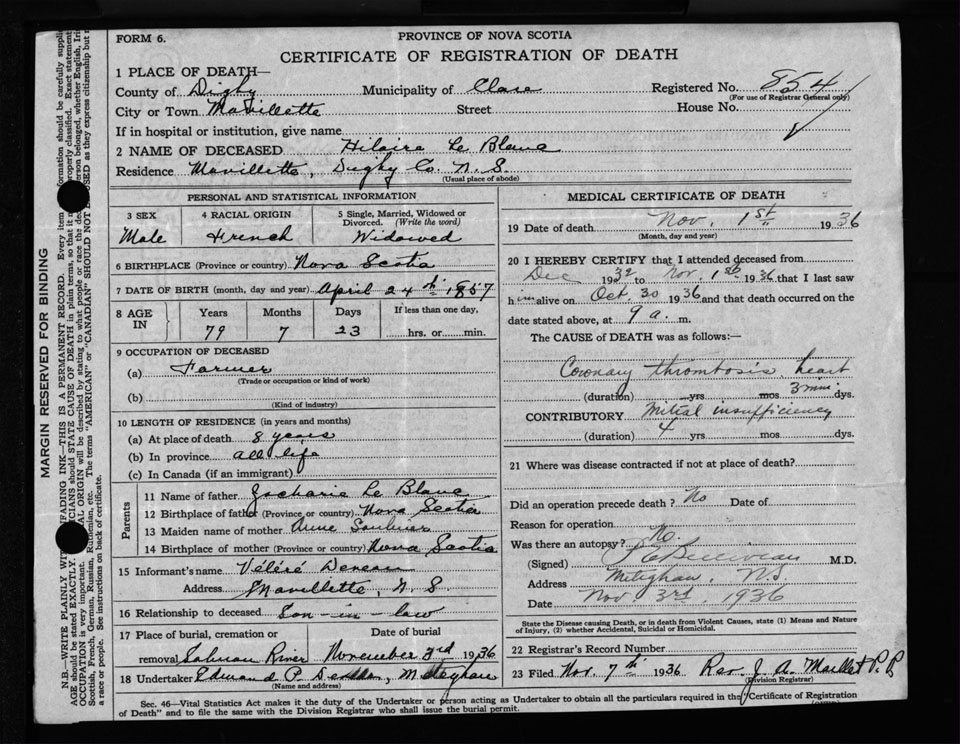 FORM 6.
PROVINCE OF NOVA SCOTIA
CERTIFICATE OF REGISTRATION OF DEATH
1 PLACE OF DEATH—
County of Digby Municipality of Clare Registered No. 854
(For use of Registrar General only)
City or Town Mavillette Street House No.
If in hospital or institution, give name
2 NAME OF DECEASED Hilaire Le Blanc
Residence Mavillette, Digby Co. N. S.
(Usual place of abode)
PERSONAL AND STATISTICAL INFORMATION
3 SEX 4 RACIAL ORIGIN 5 Single, Married, Widowed or
Divorced. (Write the word)
Male French Widowed
6 BIRTHPLACE (Province or country) Nova Scotia
7 DATE OF BIRTH (month, day and year) April 24th 1857
8 AGE IN Years Months Days If less than one day,
79 7 23 hrs. or min.
9 OCCUPATION OF DECEASED
(a) Farmer
(Trade or occupation or kind of work)
(b)
(Kind of industry)
10 LENGTH OF RESIDENCE (in years and months)
(a) At place of death 8 years
(b) In province all life
(c) In Canada (if an immigrant)
Parents
11 Name of father Zacharie Le Blanc
12 Birthplace of father (Province or country) Nova Scotia
13 Maiden name of mother Anne Saulnier
14 Birthplace of mother (Province or country) Nova Scotia
15 Informant's name Deveau
Address Mavillette, N. S.
16 Relationship to deceased Son-in-law
17 Place of burial, cremation or Date of burial
removal Salmon River November 3rd 1936
18 Undertaker Edmund P. Meteghan
(Name and address)
MEDICAL CERTIFICATE OF DEATH
19 Date of death Nov. 1st 1936
(Month, day and year)
20 I HEREBY CERTIFY that I attended deceased from
Dec 1932 to Nov. 1st 1936 that I last saw
him alive on Oct. 30 1936 and that death occurred on the
date stated above, at 9 a. m.
The CAUSE of DEATH was as follows:—
Coronary thrombosis, heart
(duration) yrs mos 3 min dys.
CONTRIBUTORY Mitral insufficiency
(duration) 4 yrs mos dys.
21 Where was disease contracted if not at place of death?
Did an operation precede death? No Date of
Reason for operation
Was there an autopsy? No.
(Signed) M.D.
Address Meteghan, N.S.
Date Nov. 3rd, 1936
State the Disease causing Death, or in death from Violent Causes, state (1) Means and Nature
of Injury, (2) whether Accidental, Suicidal or Homicidal.
22 Registrar's Record Number
23 Filed Nov. 7th 1936 Rev. J. A. Maillet P. P.
(Division Registrar)
Sec. 46—Vital Statistics Act makes it the duty of the Undertaker or person acting as Undertaker to obtain all the particulars required in the "Certificate of Registration
of Death" and to file the same with the Division Registrar who shall issue the burial permit.
MARGIN RESERVED FOR BINDING